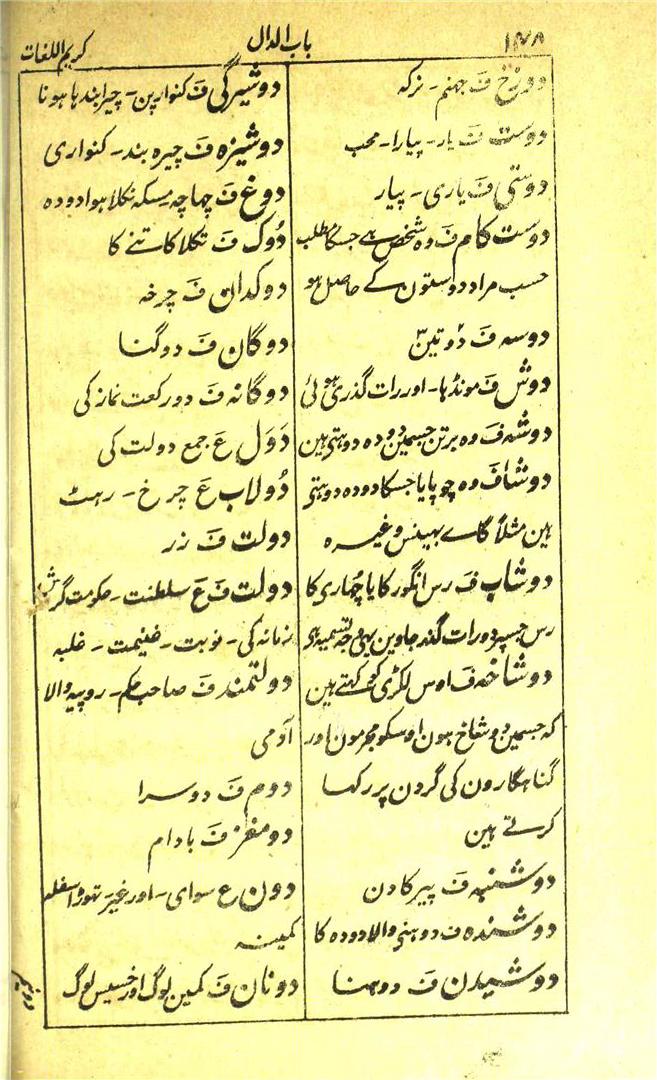 ۱۴۸
باب الدال
کریم اللغات
دوزخ ف جہنم - نرکہ
دوست ف یار - پیارا - محب
دوستی ف یاری - پیار
دوست کام ف وہ شخص ہے جسکا مطلب
حسب مراد دوستون کے حاصل ہو
دوسہ ف دو تین
دوش ف مونڈہا - اور رات گذری ہوئی
دوشہ ف وہ برتن جسمین دودہ دوہتی ہین
دوشا ف وہ چوپایا جسکا دودہ دوہتی
ہین مثلاً گاے بہینس وغیرہ
دوشاب ف رس انگور کا یا چہاری کا
رس جسپر دو رات گذر جاوین یہی وجہ تسمیہ ہو
دوشاخہ ف اوس لکڑی کو کہتے ہین
کہ جسمین دو شاخ ہون اوسکو مجرمون اور
گناہگارون کی گردن پر رکہا
کرتے ہین
دوشنبہ ف پیر کا دن
دوشندہ ف دوہنی والا دودہ کا
دوشیدن ف دوہنا
دوشیزگی ف کنوارپن - چیرا بندہا ہونا
دوشیزہ ف چیرہ بند - کنواری
دوغ ف چہاچہ مسکہ نکلا ہوا دودہ
دُوک ف تکلا کاتنے کا
دوکدان ف چرخہ
دوگان ف دوگنا
دوگانہ ف دو رکعت نماز کی
دَوَل ع جمع دولت کی
دُولاب ع چرخ - رہٹ
دولت ف زر
دولت ف ع سلطنت - حکومت گردش
زمانہ کی - نوبت - غنیمت - غلبہ
دولتمند ف صاحب حکم - روپیہ والا
آدمی
دوم ف دوسرا
دومغز ف بادام
دون ع سوای - اور غیر - تہوڑا سفلہ
کمینہ
دونان ف کمین لوگ اور خسیس لوگ